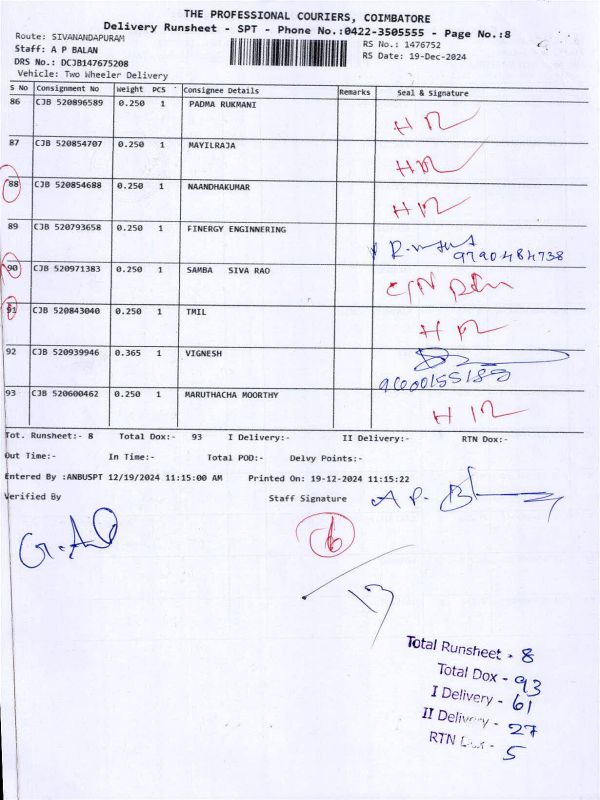 THE PROFESSIONAL COURIERS, COIMBATORE
Delivery Runsheet - SPT - Phone No.:0422-3505555 - Page No.:8
Route: SIVANANDAPURAM
RS No.: 1476752
Staff: A P BALAN
RS Date: 19-Dec-2024
DRS No.: DCJB147675208
Vehicle: Two Wheeler Delivery
S No Consignment No Weight PCS Consignee Details Remarks Seal & Signature
86 CJB 520896589 0.250 1 PADMA RUKMANI
87 CJB 520854707 0.250 1 MAYILRAJA
88 CJB 520854688 0.250 1 NAANDHAKUMAR
89 CJB 520793658 0.250 1 FINERGY ENGINNERING
9790484738
90 CJB 520971383 0.250 1 SAMBA SIVA RAO
91 CJB 520843040 0.250 1 TMIL
92 CJB 520939946 0.365 1 VIGNESH
93 CJB 520600462 0.250 1 MARUTHACHA MOORTHY
Tot. Runsheet:- 8 Total Dox:- 93 I Delivery:- II Delivery:- RTN Dox:-
Out Time:- In Time:- Total POD:- Delvy Points:-
Entered By :ANBUSPT 12/19/2024 11:15:00 AM Printed On: 19-12-2024 11:15:22
Verified By Staff Signature A P.
Total Runsheet - 8
Total Dox - 93
I Delivery - 61
II Delivery - 27
RTN Dox - 5